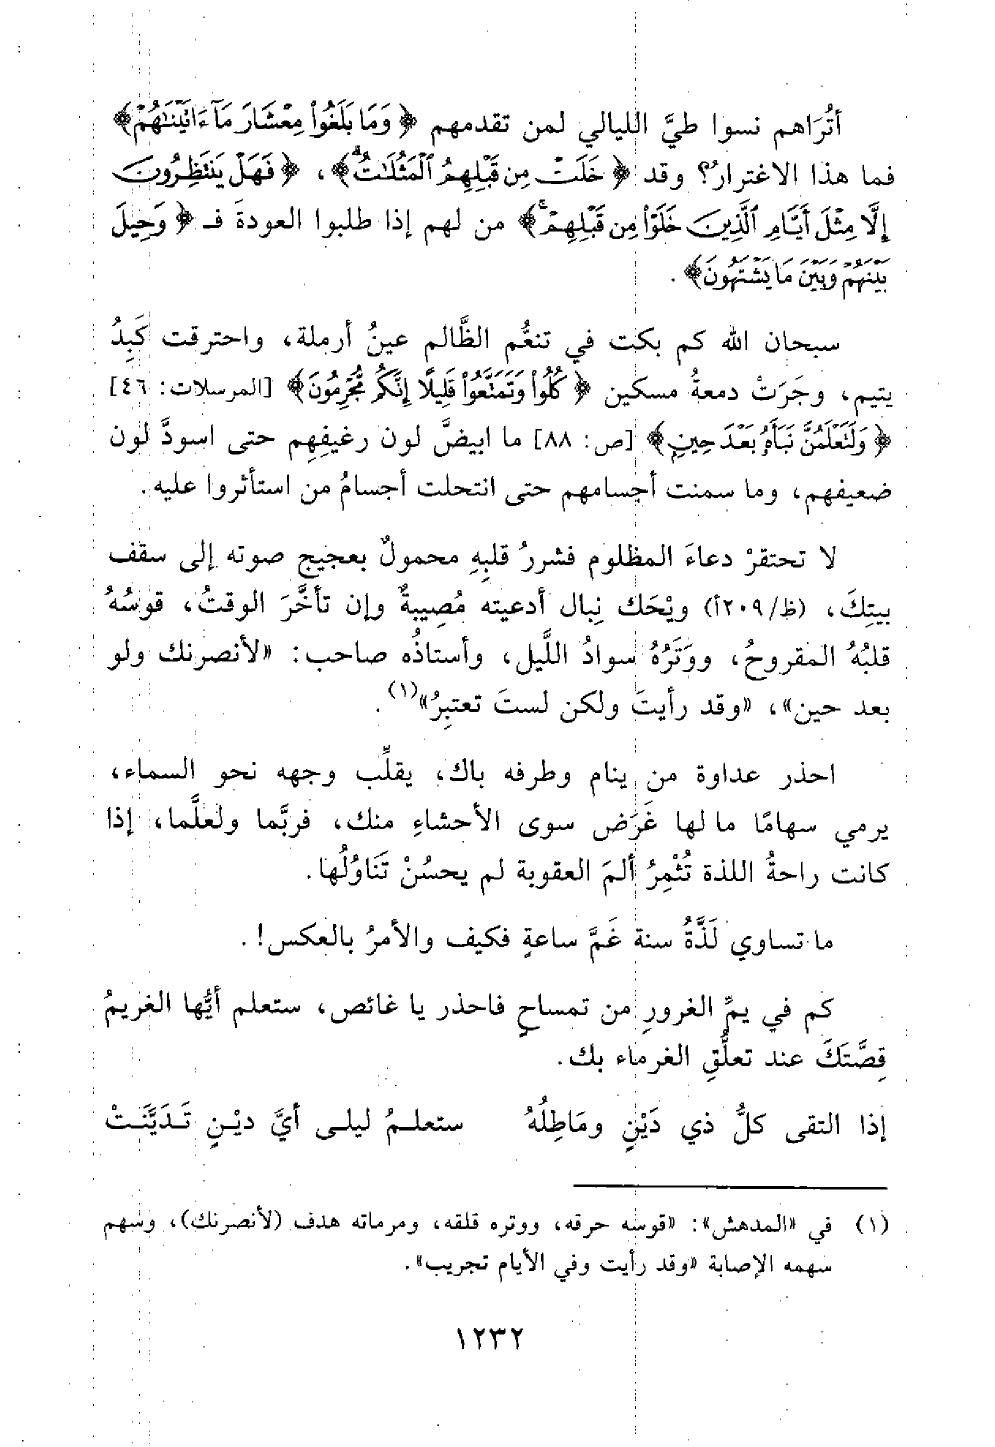 أتُرَاهم نسوا طيَّ الليالي لمن تقدمهم ﴿وَمَا بَلَغُوا۟ مِعْشَارَ مَآ ءَاتَيْنَـٰهُمْ﴾
فما هذا الاغترارُ؟ وقد ﴿خَلَتْ مِن قَبْلِهِمُ ٱلْمَثُلَـٰتُ﴾، ﴿فَهَلْ يَنتَظِرُونَ
إِلَّا مِثْلَ أَيَّامِ ٱلَّذِينَ خَلَوْا۟ مِن قَبْلِهِمْ﴾ من لهم إذا طلبوا العودةَ فـ ﴿وَحِيلَ
بَيْنَهُمْ وَبَيْنَ مَا يَشْتَهُونَ﴾.
سبحان الله كم بكت في تنعُّم الظَّالم عينُ أرملة، واحترقت كَبِدُ
يتيم، وجَرَتْ دمعةُ مسكين ﴿كُلُوا۟ وَتَمَتَّعُوا۟ قَلِيلًا إِنَّكُم مُّجْرِمُونَ﴾ [المرسلات: ٤٦]
﴿وَلَتَعْلَمُنَّ نَبَأَهُۥ بَعْدَ حِينٍ﴾ [ص: ٨٨] ما ابيضَّ لون رغيفِهِم حتى اسودَّ لون
ضعيفهم، وما سمنت أجسامهم حتى انتحلت أجسامُ من استأثروا عليه.
لا تحتقرْ دعاءَ المظلوم فشررُ قلبِهِ محمولٌ بعجيج صوته إلى سقف
بيتِكَ، (ظ/٢٠٩أ) ويْحَك نِبال أدعيته مُصِيبةٌ وإن تأخَّرَ الوقتُ، قوسُهُ
قلبُهُ المقروحُ، ووَتَرُهُ سوادُ اللَّيل، وأستاذُه صاحب: «لأنصرنك ولو
بعد حين»، «وقد رأيتَ ولكن لستَ تعتبِرُ»(١).
احذر عداوة من ينام وطرفه باك، يقلِّب وجهه نحو السماء،
يرمي سهامًا ما لها غَرَض سوى الأحشاءِ منك، فربَّما ولعلَّما، إذا
كانت راحةُ اللذة تُثْمِرُ ألمَ العقوبة لم يحسُنْ تَنَاوُلُها.
ما تساوي لَذَّةُ سنة غَمَّ ساعةٍ فكيف والأمرُ بالعكس!.
كم في يمِّ الغرورِ من تمساحٍ فاحذر يا غائص، ستعلم أيُّها الغريمُ
قِصَّتَكَ عند تعلُّقِ الغرماء بك.
إذا التقى كلُّ ذي دَيْنٍ ومَاطِلُهُ ستعلـمُ ليلـى أيَّ ديْـنٍ تَـدَيَّنَـتْ
(١) في «المدهش»: «قوسه حرقه، ووتره قلقه، ومرماته هدف (لأنصرنك)، وسهم
سهمه الإصابة «وقد رأيت وفي الأيام تجريب».
١٢٣٢